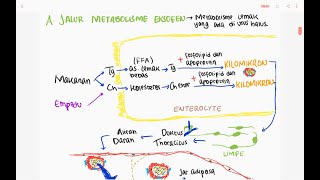 A. JALUR METABOLISME EKSOGEN → Metabolisme lemak
yang ada di usus halus
(FFA)
+ fosfolipid dan
apoprotein
Makanan Tg as. lemak bebas Tg KILOMIKRON
+ fosfolipid dan
apoprotein
Ch kolesterol Ch ester KILOMIKRON
Empedu
ENTEROCYTE
Aliran Darah
Ductus Thoracicus
LIMFE
Jar adiposa